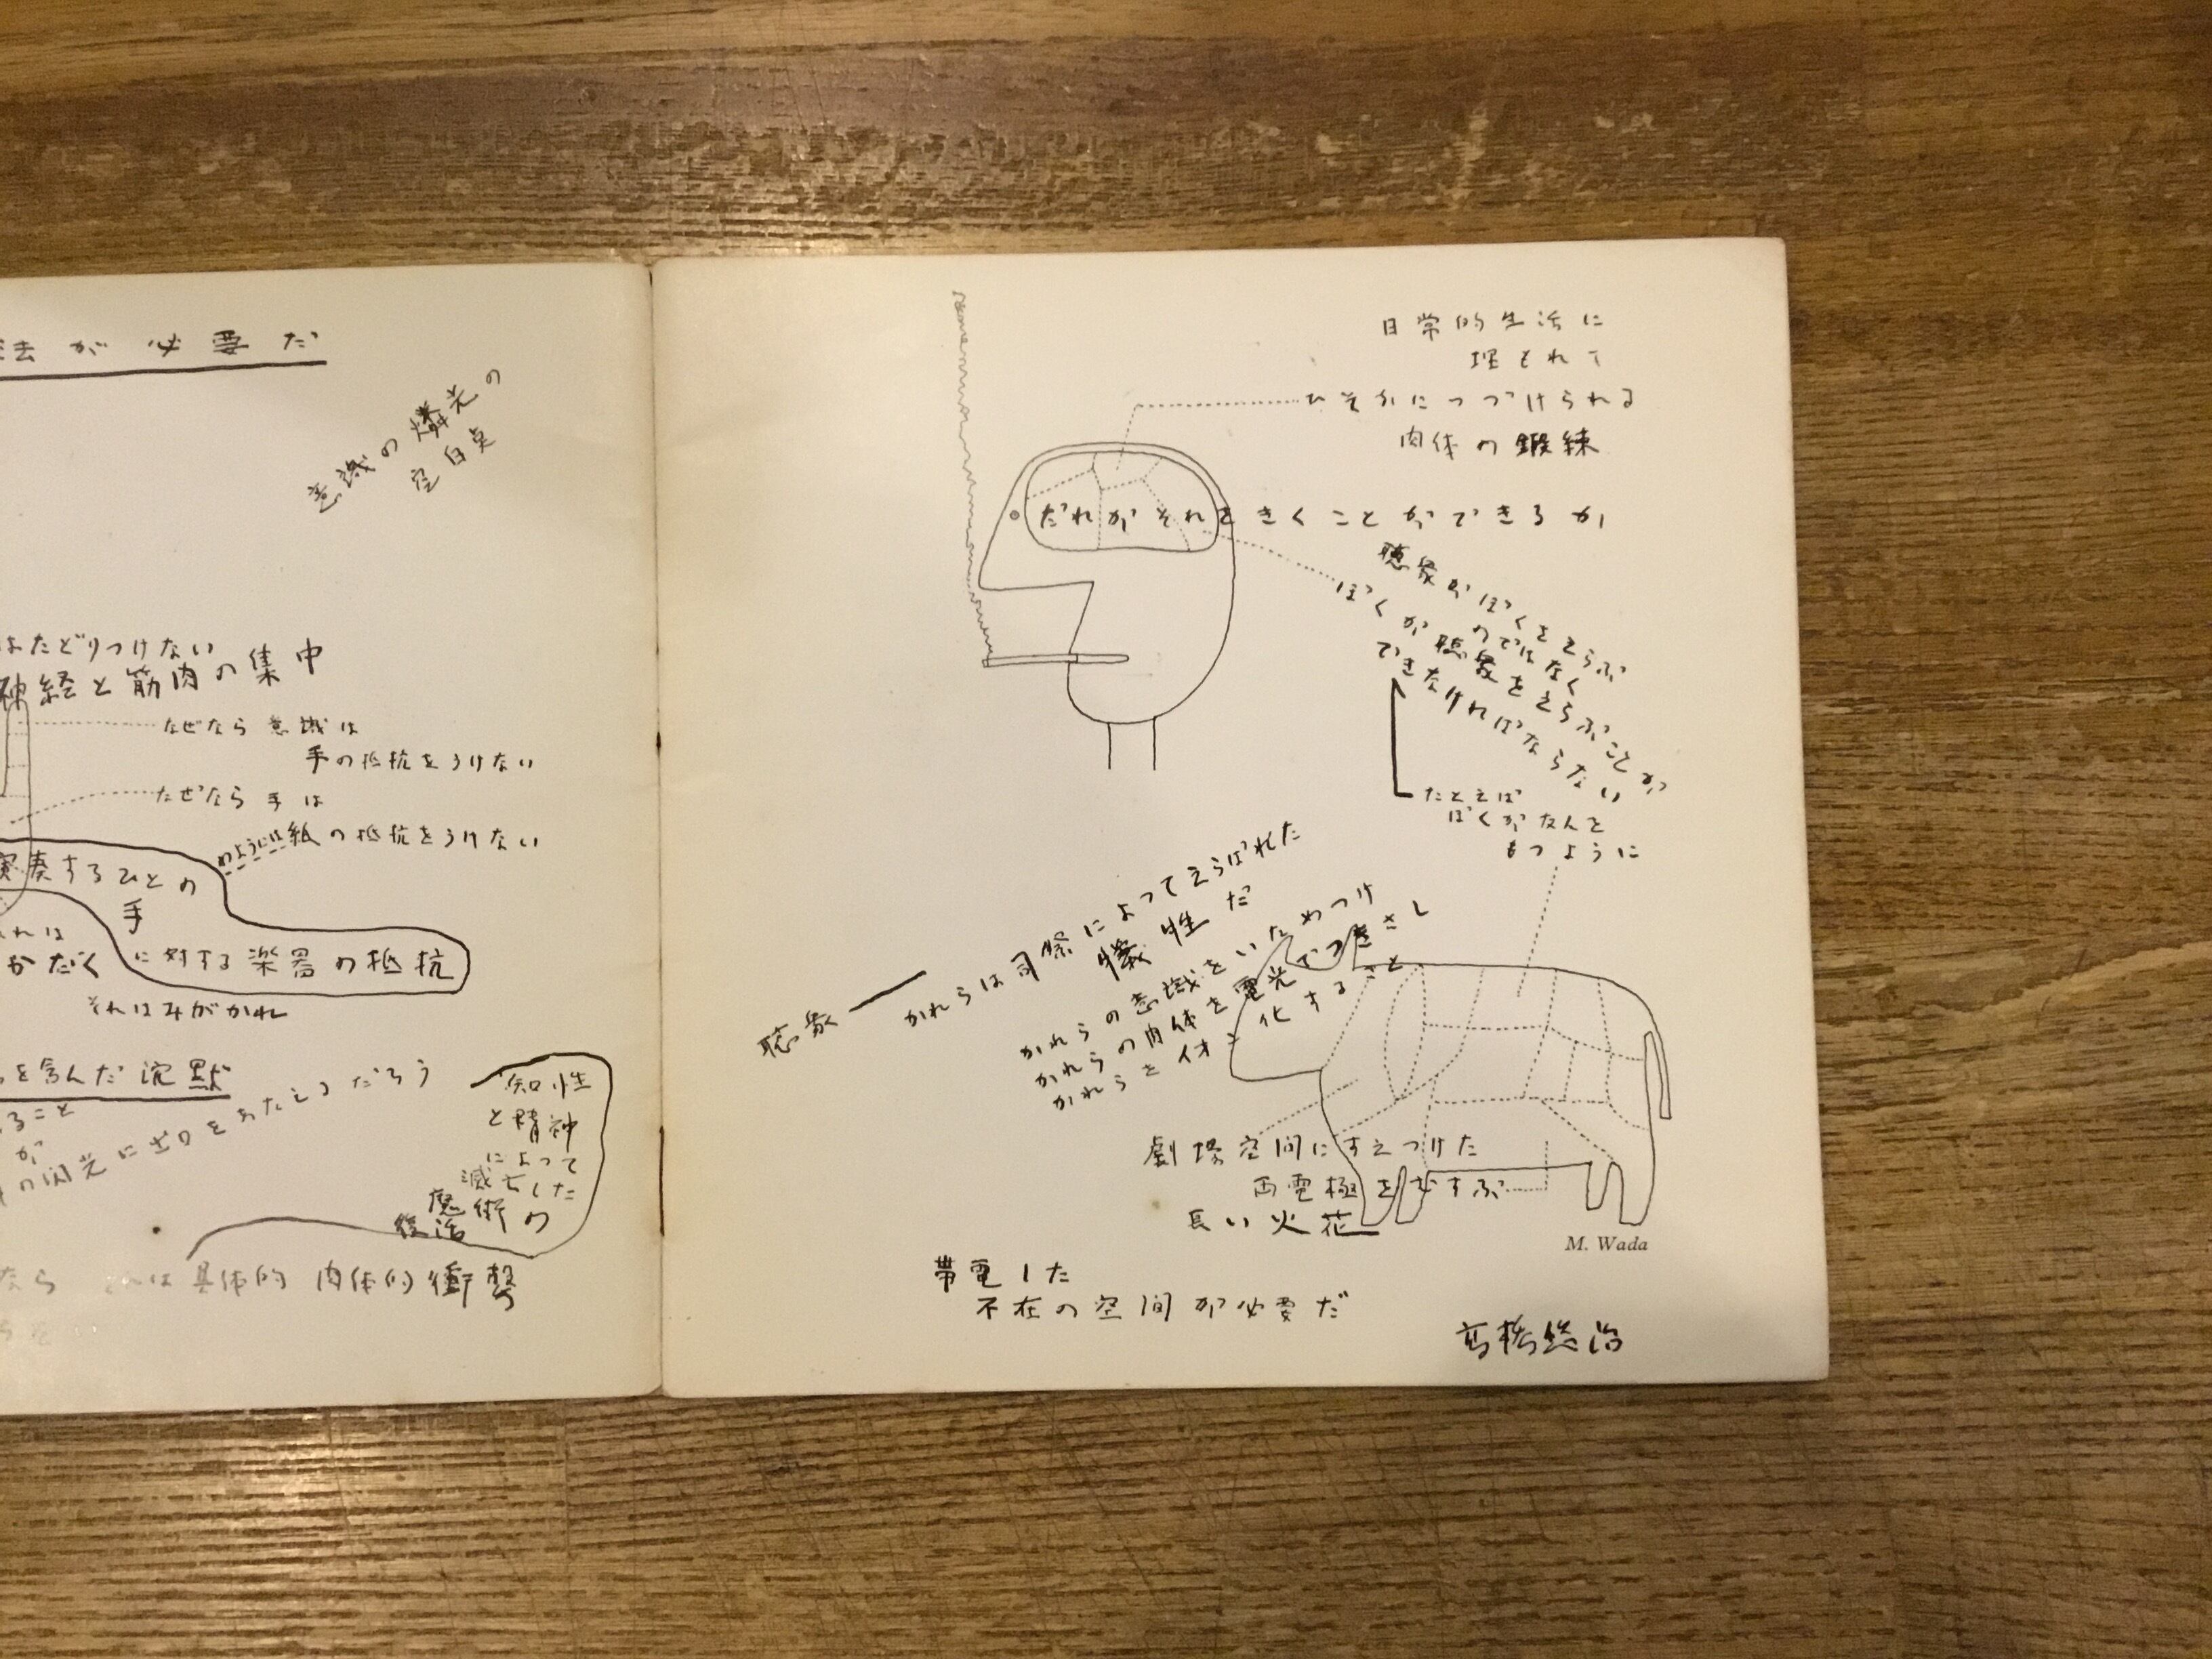 法が必要だ
意識の燐光の
空白点
はたどりつけない
神経と筋肉の集中
なぜなら意識は
手の抵抗をうけない
なぜなら手は
のようには紙の抵抗をうけない
演奏するひとの
手
に対する楽器の抵抗
れは
かたく
それはみがかれ
を含んだ沈黙
ること
が
の閃光にゼロをあたえるだろう
知性
と精神
によって
滅亡した
魔術の
復活
なら それは具体的 肉体的衝撃
日常的生活に
埋もれて
ひそかにつづけられる
肉体の鍛練
だれがそれをきくことができるか
聴衆がぼくをえらぶ
のではなく
ぼくが聴衆をえらぶことが
できなければならない
たとえば
ぼくがなんと
もつように
聴衆――かれらは司祭によってえらばれた
犠牲だ
かれらの意識をいためつけ
かれらの肉体を電光でつきさし
かれらをイオン化すること
劇場空間にすえつけた
両電極をむすぶ
長い火花
M. Wada
帯電した
不在の空間が必要だ
高橋悠治